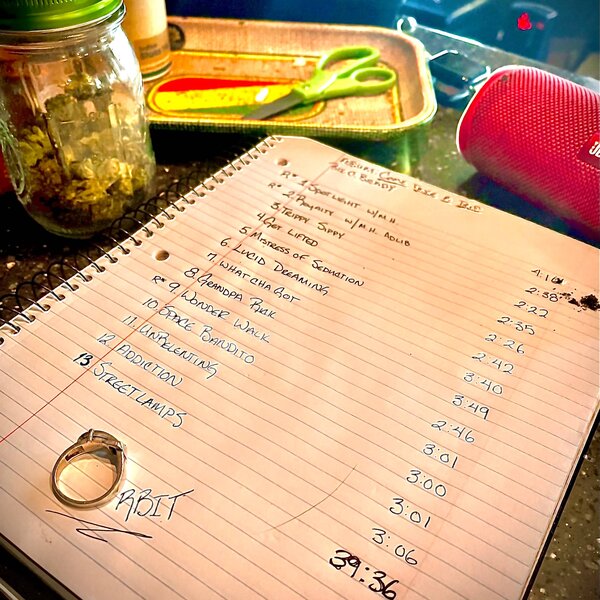 ALBUM
R* 1 SPOTLIGHT W/ M.H. 4:10
R* 2 ROYALTY W/ M.H. ADLIB 2:38
3 TRIPPY SIPPY 2:22
4 GET LIFTED 2:35
5 MISTRESS OF SEDUCTION 2:26
6 LUCID DREAMING 2:42
7 WHATCHA GOT 3:40
8 GRANDPA 3:49
R* 9 WONDER WALK 2:46
10 SPACE BANDITO 3:01
11 UNRELENTING 3:00
12 ADDICTION 3:01
13 STREETLAMPS 3:06
39:36
RBIT